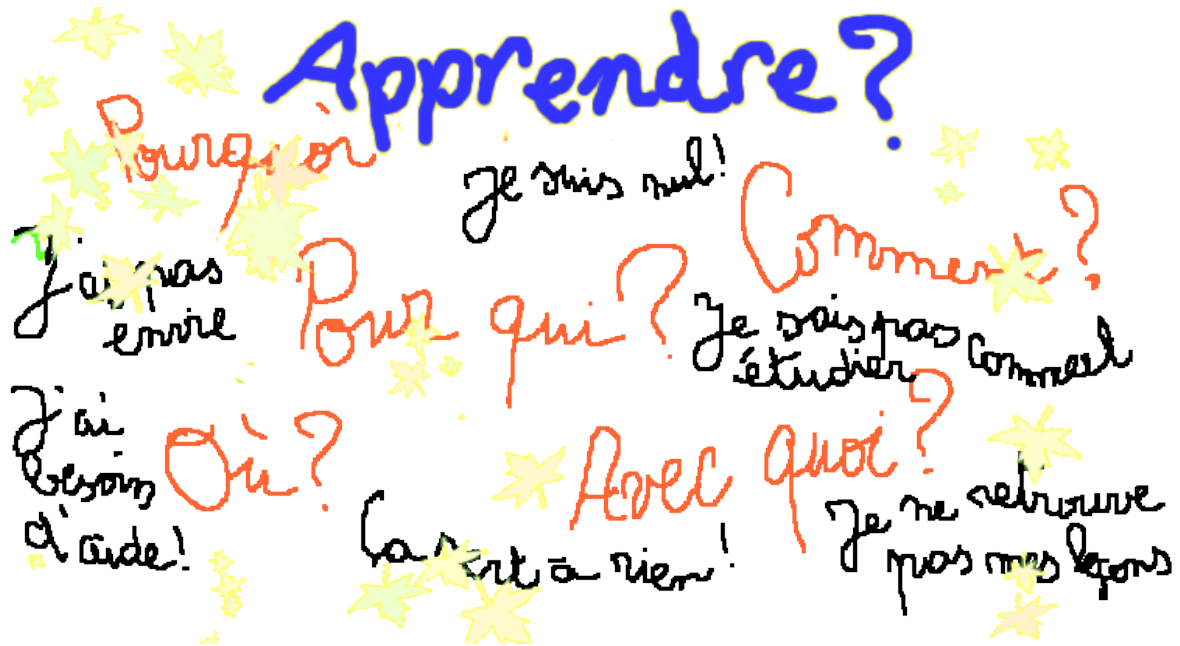 Apprendre?
Pourquoi
Je suis nul!
Comment?
J'ai pas
envie
Pour qui?
Je sais pas comment
étudier
J'ai
besoin
d'aide!
Où?
Avec quoi?
Ca sert à rien!
Je ne retrouve
pas mes leçons